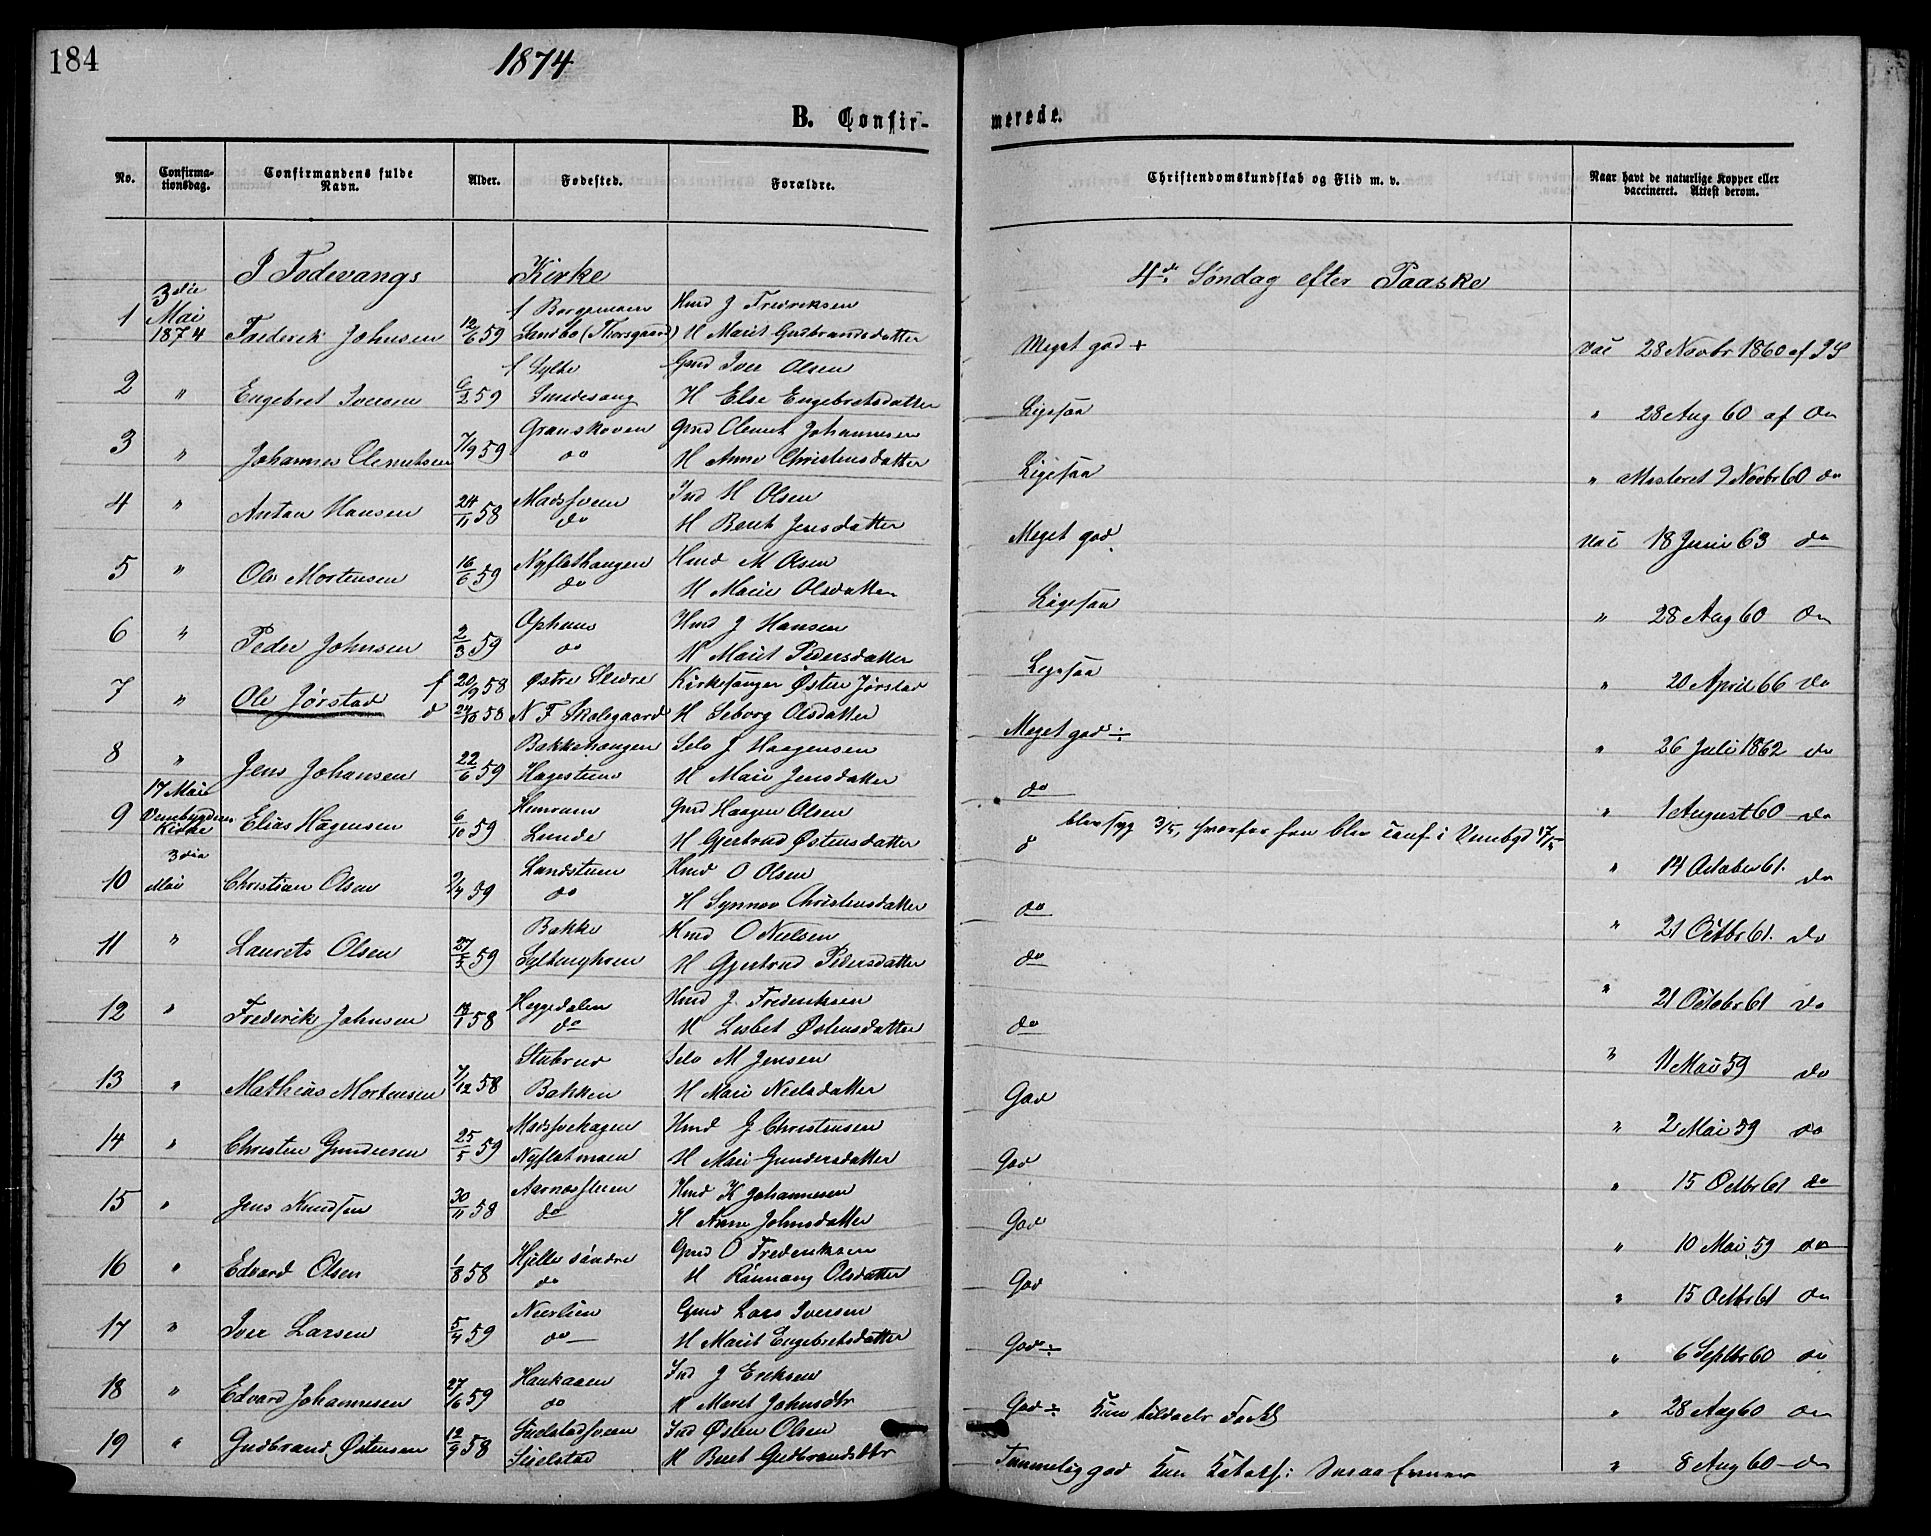 184
1874
B. Confir-
merede.
No.
Confirma-
tionsdag.
Confirmandens fulde
Navn.
Alder.
Fødested.
Forældre.
Christendomskundskab og Flid m. v.
Naar havt de naturlige Kopper eller
vaccineret. Attest derom.
I Fodevangs Kirke
4de Søndag efter Paaske
3die
Mai
1874
1 Frederik Johnsen 12/6 59 Landbo (Thorsgaard) Hmd J Fredriksen
H Marit Gudbrandsdatter
Meget god +
Vac 28 Novbr 1860 af
2 " Engebret Iversen 6/2 59 f Sylte Gmd Iver Olsen
H Else Engebretsdatter
Ligesaa
" 28 Aug 60 af do
3 " Johannes Clemetsen 7/9 59 Granskoven Gmd Clemet Johannesen
do H Anne Christensdatter
Ligesaa
" Attesteret 9 Novbr 60 do
4 " Anton Hansen 24/11 58 Madssveen Ind H Olsen
do H Berit Jensdatter
Meget god
Vac 18 Juni 63 do
5 " Ole Mortensen 16/6 59 Nyflothaugen Hmd M Olsen
do H Marie Olsdatter
Ligesaa
" 28 Aug 60 do
6 " Peder Johnsen 2/3 59 Ophuus Hmd J Hansen
do H Marit Pedersdatter
Ligesaa
" 20 April 66 do
7 " Ole Jørstad f 20/9 58 Østre Slidre Kirkesanger Østen Jørstad
d 24/10 58 N F Skolegaard H Seborg Olsdatter
Meget god ÷
" 26 Juli 1862 do
8 " Jens Johansen 22/6 59 Bakkehaugen Selv J Haagensen
Hagesteen H Mari Jensdatter
do
" 1 August 60 do
17 Mai
Venebygdens
Kirke
9 Elias Hagensen 6/10 59 Lunde Gmd Haagen Olsen
H Gjertrud Østensdatter
d blev syg 3/5, hvorfor han blev conf. i Venebygd 17/5
" 14 October 61. do
3die
Mai
10 Christian Olsen 9/4 59 Landsteen Hmd O Olsen
do H Synnøv Christensdatter
do
" 21 Octbr 61. do
11 " Laurets Olsen 27/5 59 Bakke Hmd O Nielsen
H Gjertrud Pedersdatter
do
" 21 Octobr 61 do
12 " Frederik Johnsen 58 Heggedalen Hmd J. Frederiksen
do H Lisbet Østensdatter
do
" 11 Mai 59 do
13 " Mathias Mortensen 7/12 58 Stubrud Selv M Jensen
Bakken H Mari Nielsdatter
God
" 2 Mai 59 do
14 " Christen Gundersen 25/5 59 Madsvehagen Hmd G Christensen
Nyflotmoen H Mari Gundersdatter
God
" 15 Octbr 61 do
15 " Jens Knudsen 30/11 58 Aarnesflien Hmd K Johannesen
do H Anne Johnsdatter
God
" 10 Mai 59 do
16 " Edvard Olsen 1/8 58 Hjelle søndre Gmd O Frederiksen
do H Rønnaug Olsdatter
God
" 15 Octbr 61 do
17 " Iver Larsen 5/4 59 Neerlien Gmd Lars Iversen
do H Marit Engebretsdatter
God ÷
" 6 Septbr 60 do
18 " Edvard Johannesen 27/6 59 Haukaaen Ind J Eriksen
do H Marit Johnsdtr
God ÷ Kun
" 28 Aug 60 do
19 " Gudbrand Østensen 12/9 58 Sielstadsveen Ind Østen Olsen
Sielstad H Berit Gudbrandsdtr
Temmelig god Kun
" 8 Aug 60 do